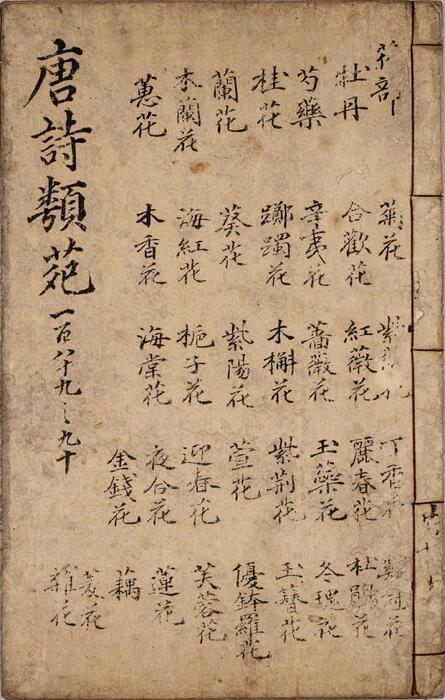 部 花 丁香花 雞冠花
牡丹 合歡花 紅薇花 麗春花 杜鵑花
芍藥 辛夷花 薔薇花 玉蘂花 冬瑰花
桂花 躑躅花 木槲花 紫荊花 玉簪花
蘭花 葵花 紫陽花 萱花 優鉢羅花
木蘭花 海紅花 梔子花 迎春花 芙蓉花
蕙花 木香花 海棠花 夜合花 蓮花
金錢花 藕
菱花
雜花
唐詩類苑 一百八十九之九十